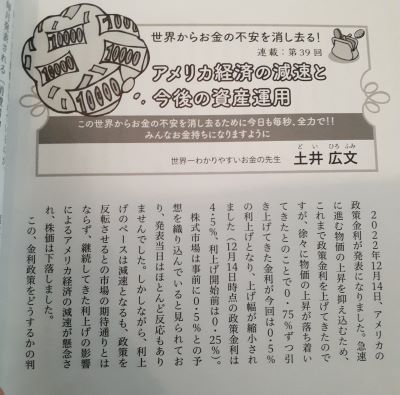 10000
10000
10000
10000
世界からお金の不安を消し去る!
連載:第39回
アメリカ経済の減速と
今後の資産運用
この世界からお金の不安を消し去るために今日も毎秒、全力で!!
みんなお金持ちになりますように
世界一わかりやすいお金の先生 土井 広文
どい ひろふみ
2022年12月14日、アメリカの
政策金利が発表になりました。急速
に進む物価の上昇を抑え込むため、
これまで政策金利を上げてきたので
すが、徐々に物価の上昇が落ち着い
てきたとのことで0・75%ずつ引
き上げてきた金利が今回は0・5%
の利上げとなり、上げ幅が縮小され
ました(12月14日時点の政策金利は
4・5%、利上げ開始前は0・25%)。
株式市場は事前に0・5%との予
想を織り込んでいると見られてお
り、発表当日はほとんど反応もあり
ませんでした。しかしながら、利上
げのペースは減速となるも、政策を
反転させるとの市場の期待通りとは
ならず、継続してきた利上げの影響
によるアメリカ経済の減速が懸念さ
れ、株価は下落しました。
この、金利政策をどうするかの判